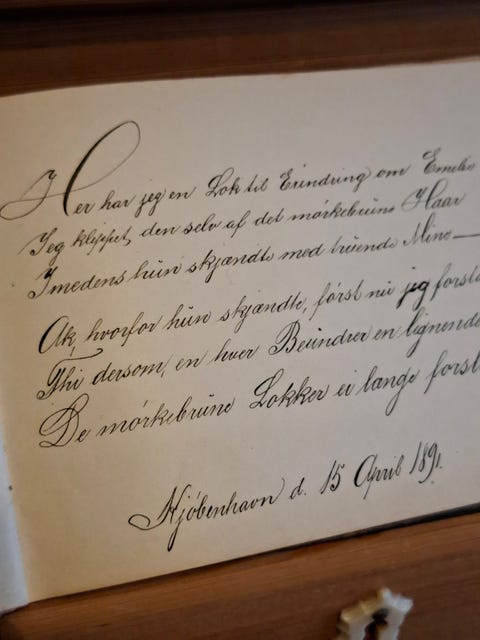 Her har jeg en Lok til Erindring om Emelie
Jeg klippet, den selv af det mørkebruns Haar
Imedens hun skjændte med truende Mine—
Ak, hvorfor hun skjændte, först nu jeg
Thi dersom, en hver Beundrer en lignende
De mørkebrune Lokker ei længe
Kjöbenhavn d. 15 April 1891.